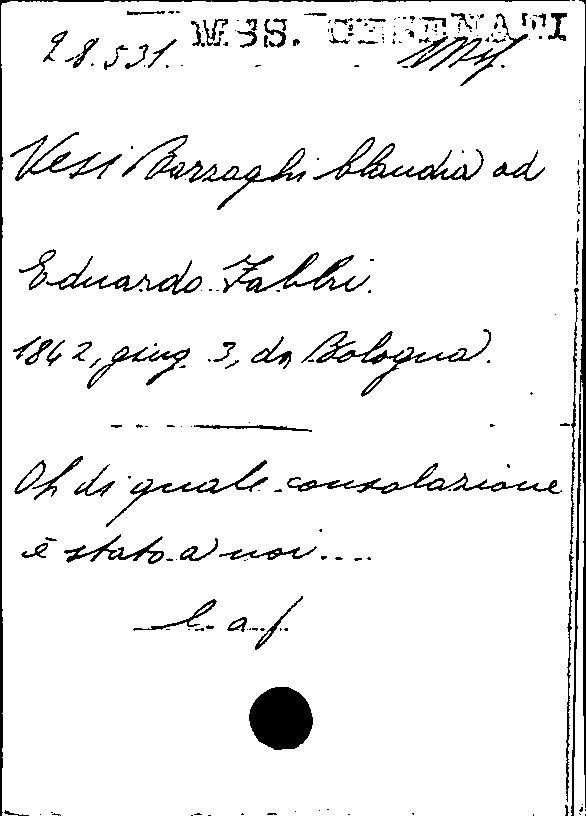 MSS. CESENATI
28.531.
Vesi Barzaghi Claudia ad
Eduardo Fabbri.
1842, giug. 3, da Bologna.
Oh di quale consolazione
è stato a noi....
l. a. f.